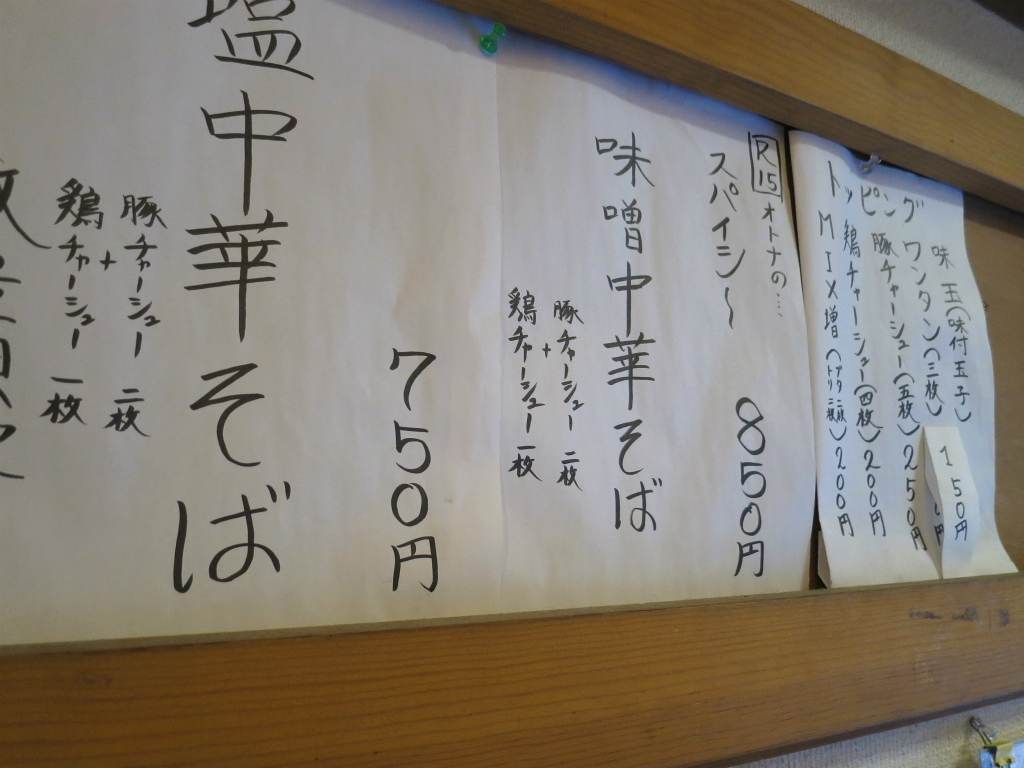 トッピング
味玉(味付玉子) 150円
ワンタン(三枚) 円
豚チャーシュー(五枚) 250円
鶏チャーシュー(四枚) 200円
MIX増(ブタ二枚
トリ) 200円
R15 オトナの…
スパイシ〜 850円
味噌中華そば
豚チャーシュー 二枚
+
鶏チャーシュー 一枚
750円
塩中華そば
豚チャーシュー 二枚
+
鶏チャーシュー 一枚